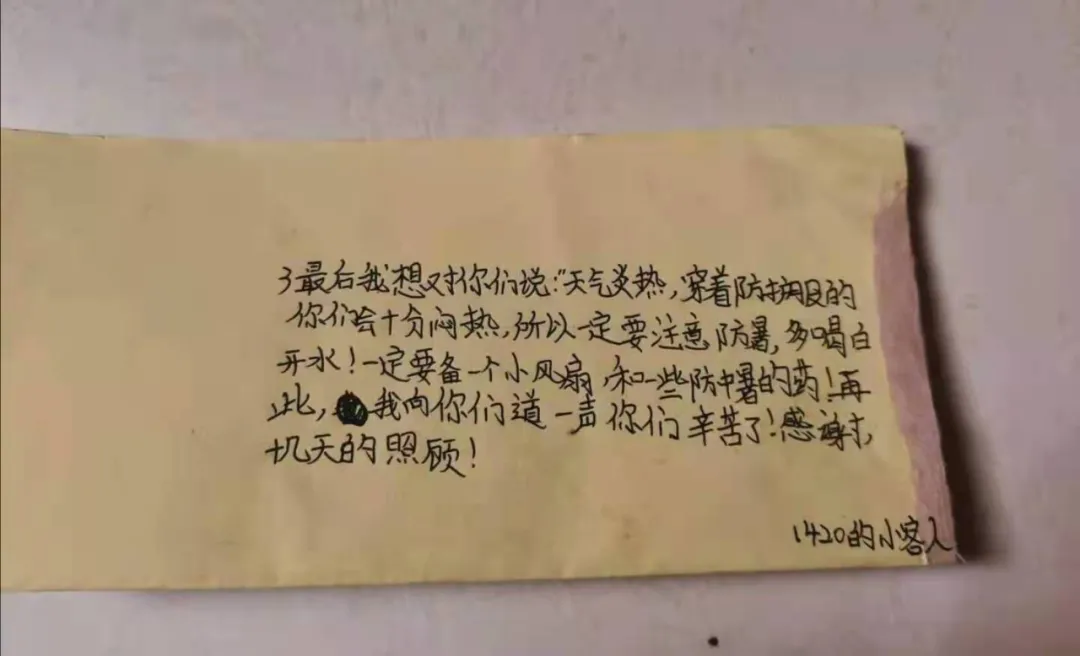 了最后我想对你们说:"天气炎热,穿着防护服的
你们会十分闷热,所以一定要注意防暑,多喝白
开水!一定要备一个小风扇,和一些防中暑的药!再
此,我向你们道一声你们辛苦了!感谢,
十几天的照顾!
1420的小客人